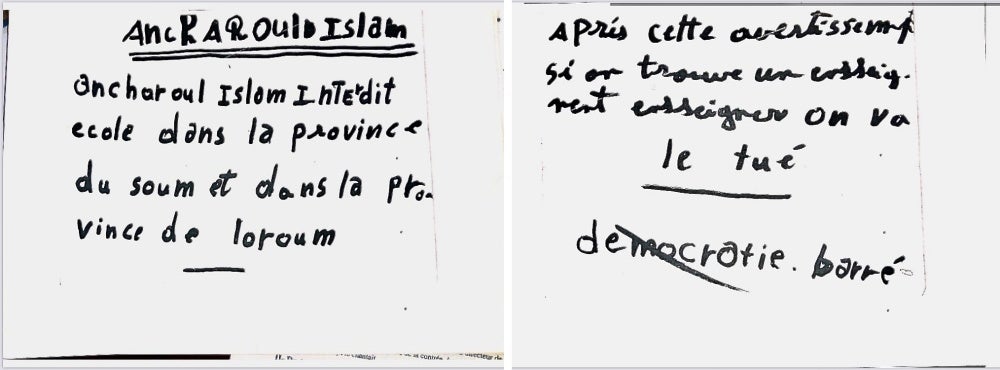 AncKAROulD Islam
ancharoul Islam InTErdit
ecole dans la province
du soum et dans la pro-
vince de loroum
Après cette avertissemnt
si on trouve un ensseig-
nent ensseigner on va
le tué
democratie. barré